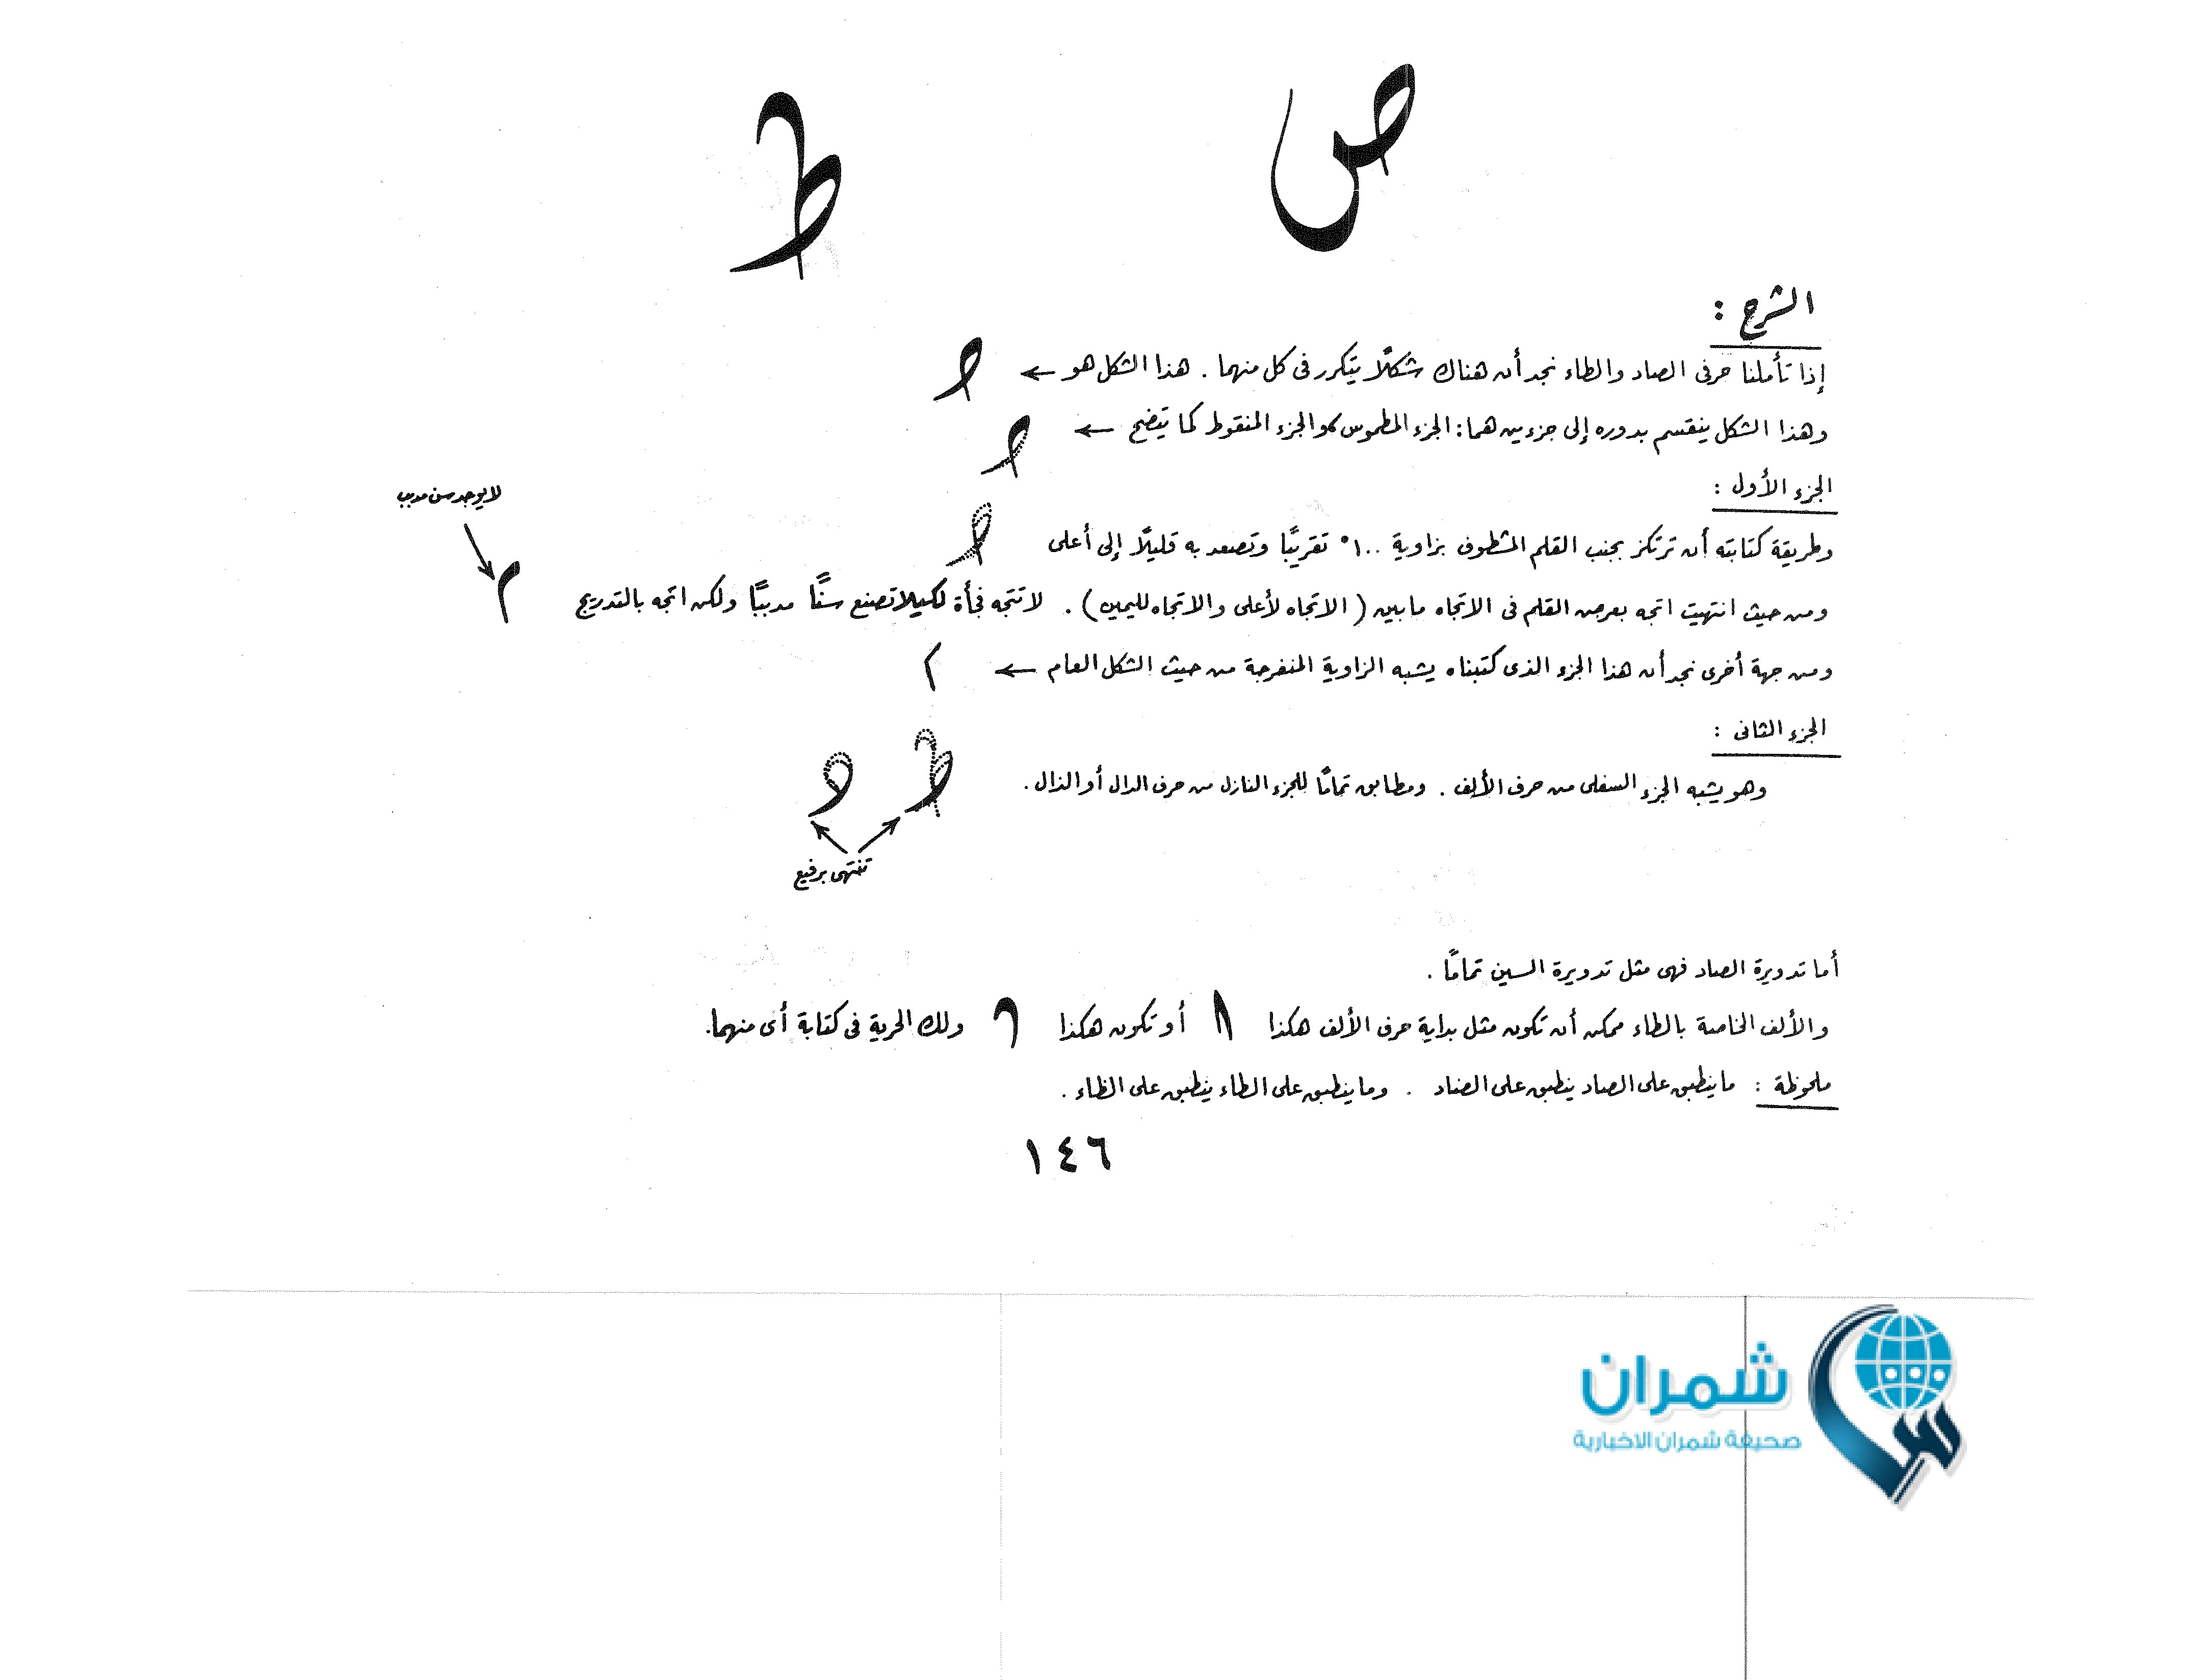 ص ط
الشرح :
إذا تأملنا حرفى الصاد والطاء نجد أن هناك شكلًا يتكرر فى كل منهما . هذا الشكل هو ←
وهذا الشكل ينقسم بدوره إلى جزءين هما : الجزء المطموس والجزء المنقوط كما يتضح ←
الجزء الأول :
لا يوجد سن مدبب
وطريقة كتابته أن ترتكز بجنب القلم المشطوف بزاوية ١٠٠° تقريبًا وتصعد به قليلًا إلى أعلى
ومن حيث انتهيت اتجه بعرض القلم فى الاتجاه ما بين ( الاتجاه لأعلى والاتجاه لليمين ) . لا تتجه فجأة لكيلا تصنع سنًّا مدببًا ولكن اتجه بالتدريج
ومن جهة أخرى نجد أن هذا الجزء الذى كتبناه يشبه الزاوية المنفرجة من حيث الشكل العام ←
الجزء الثانى :
وهو يشبه الجزء السفلى من حرف الألف . ومطابق تمامًا للجزء النازل من حرف الدال أو الذال .
تنتهى برفيع
أما تدويرة الصاد فهى مثل تدويرة السين تمامًا .
والألف الخاصة بالطاء ممكن أن تكون مثل بداية حرف الألف هكذا أو تكون هكذا ولك الحرية فى كتابة أى منهما.
ملحوظة : ما ينطبق على الصاد ينطبق على الضاد . وما ينطبق على الطاء ينطبق على الظاء .
١٤٦
شمران
صحيفة شمران الاخبارية